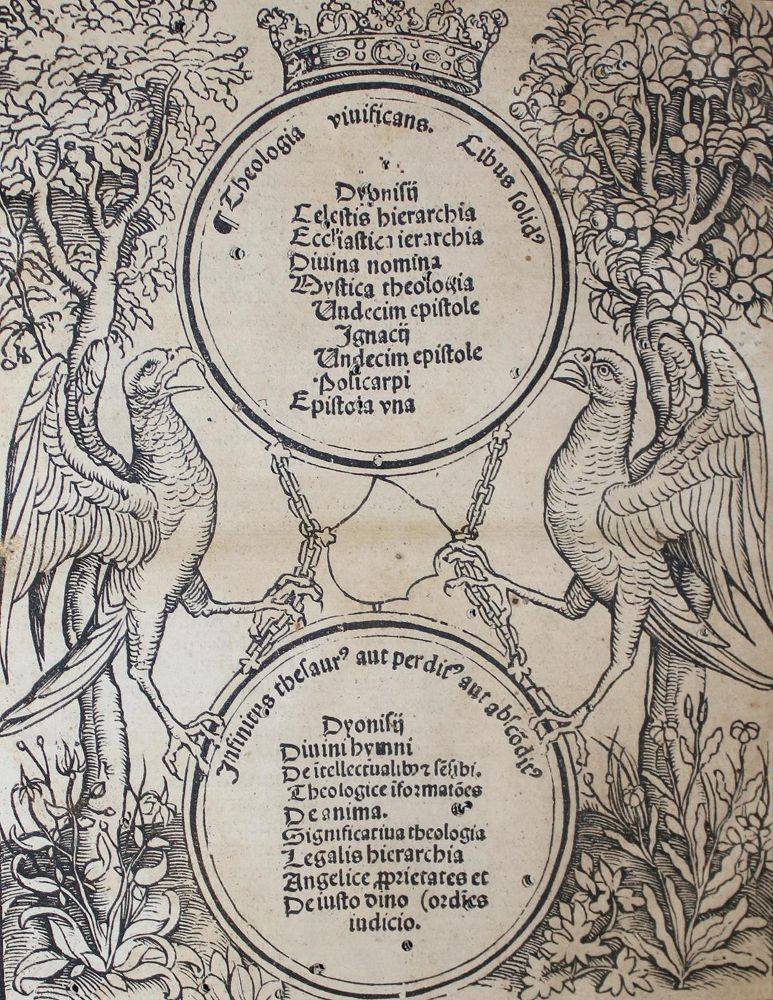 ¶ Theologia viuificans. Cibus solidꝰ
Dyonisij
Celestis hierarchia
Ecclĩastica ierarchia
Diuina nomina
Mystica theologia
Undecim epistole
Ignacij
Undecim epistole
Policarpi
Epistola vna
Infinitus thesaurꝰ aut perditꝰ aut abscõditꝰ
Dyonisij
Diuini hymni
De ĩtellectualibꝰ ⁊ sẽsibi.
Theologice ĩformatões
De anima.
Significatiua theologia
Legalis hierarchia
Angelice ꝓprietates et
De iusto diño (ordĩes
iudicio.